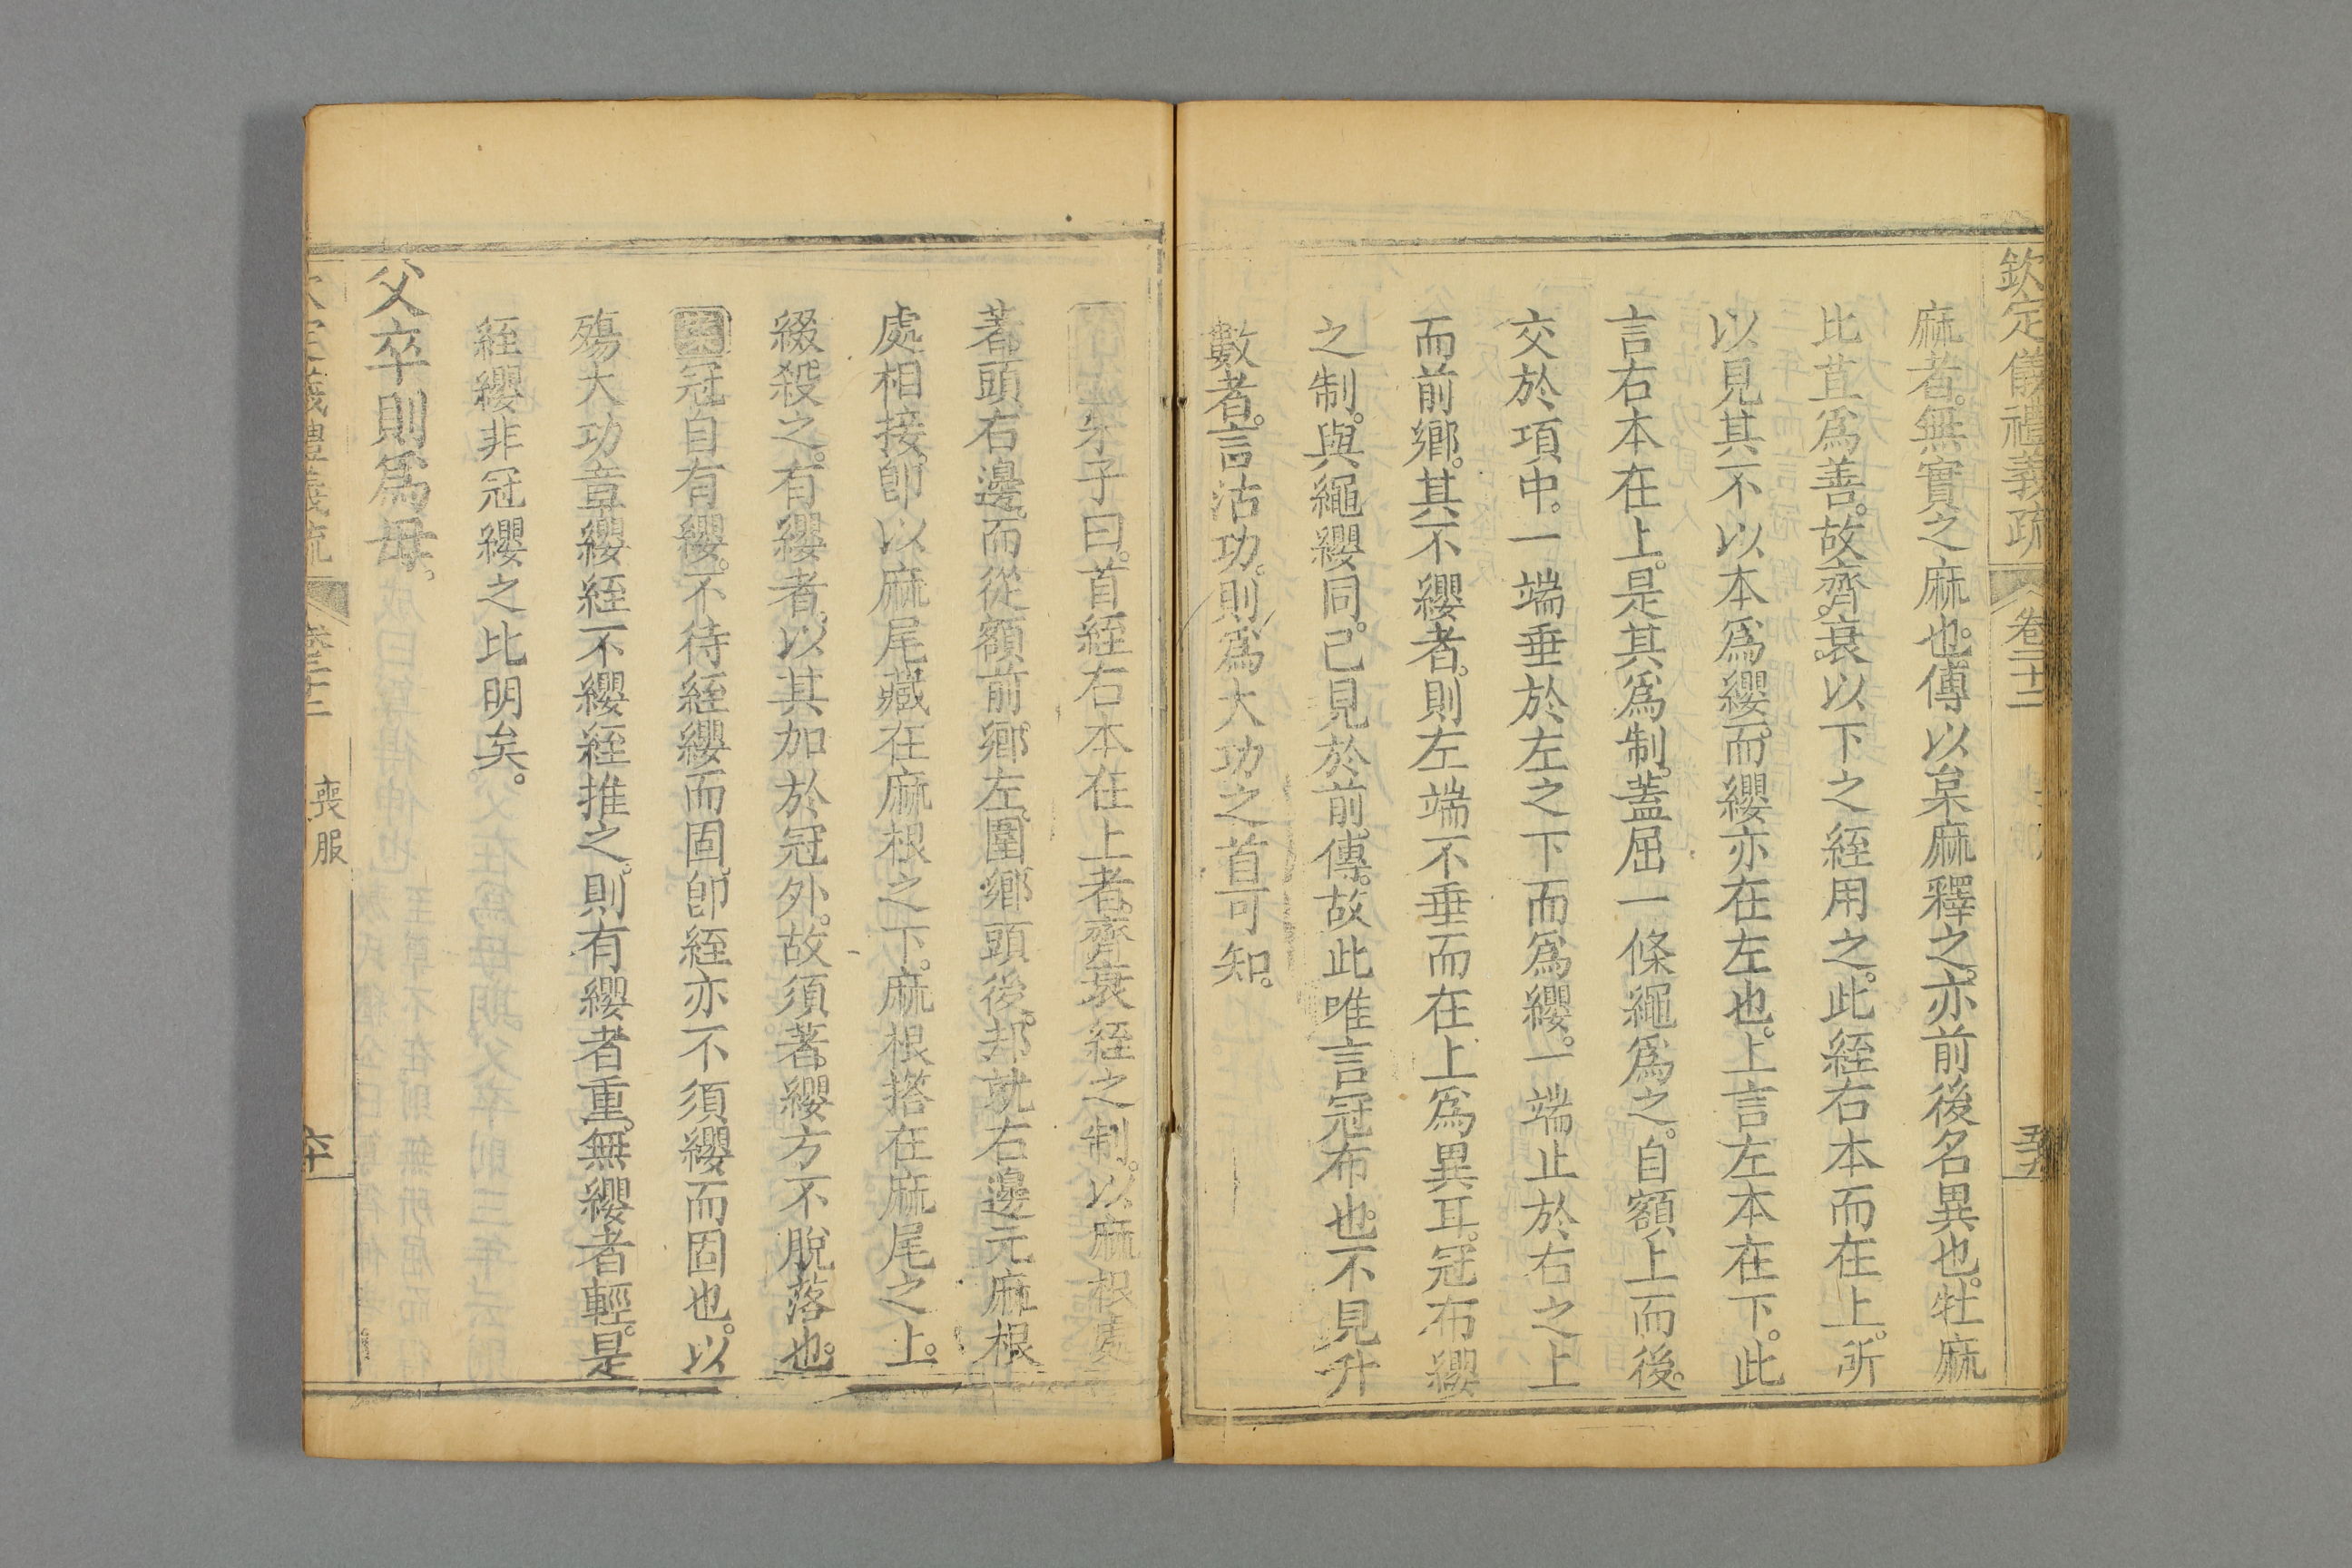 欽定儀禮義疏 卷二十二
麻者。無實之麻也。傳以枲麻釋之。亦前後名異也。牡麻
比苴爲善。故齊衰以下之絰用之。此絰右本而在上。所
以見其不以本爲纓。而纓亦在左也。上言左本在下。此
言右本在上。是其爲制。蓋屈一條繩爲之。自額上而後。
交於項中。一端垂於左之下而爲纓。一端止於右之上
而前鄉。其不纓者。則左端不垂而在上爲異耳。冠布纓
之制。與繩纓同。已見於前傳。故此唯言冠布也。不見升
數者。言沽功。則爲大功之首可知。
朱子曰。首絰右本在上者。齊衰絰之制。以麻根處
著頭右邊。而從額前鄉左。圍鄉頭後。却就右邊元麻根
處相接。卽以麻尾藏在麻根之下。麻根搭在麻尾之上。
綴殺之。有纓者。以其加於冠外。故須著纓。方不脫落也。
案冠自有纓。不待絰纓而固。卽絰亦不須纓而固也。以
殤大功章纓絰不纓絰推之。則有纓者重。無纓者輕。是
絰纓非冠纓之比明矣。
父卒則爲母。
欽定儀禮義疏 卷二十二 喪服